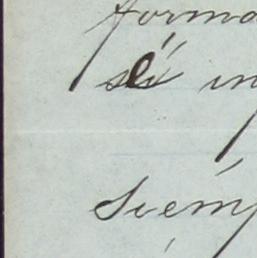 forma
si in
Siemp